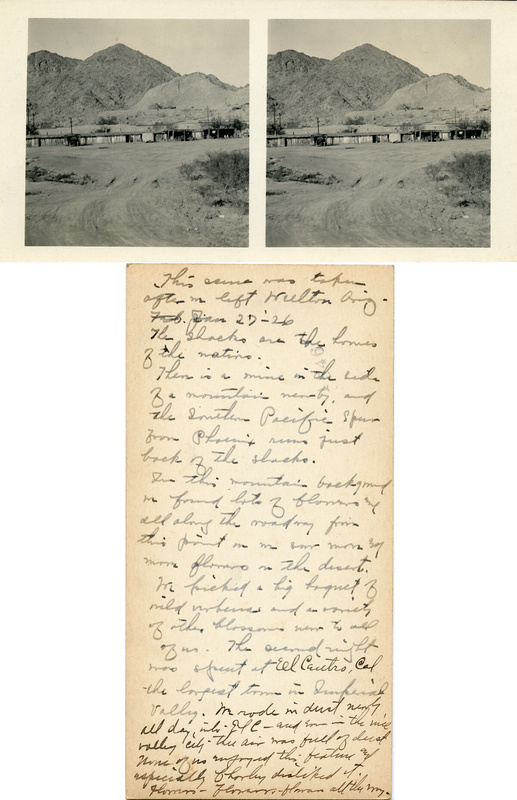 This scene was taken
after we left Wellton Ariz-
Feb. Jan 27-26
The shacks are the homes
of the natives.
There is a mine in the side
of a mountain nearby, and
the Southern Pacific Spur
from Phoenix runs just
back of the shacks.
In this mountain background
we found lots of flowers and
all along the roadway from
this point on we saw more and
more flowers on the desert.
We picked a big boquet of
wild verbenas and a variety
of other blossoms new to all
of us. The second night
was spent at Ell Centro, Cal
the largest town in Imperial
Valley. We rode in dust nearly
all day, into E/C - and even in the nice
valley city - the air was full of dust
None of us enjoyed this feature and
especially Charley disliked it.
Flowers - Flowers - flowers all the way.